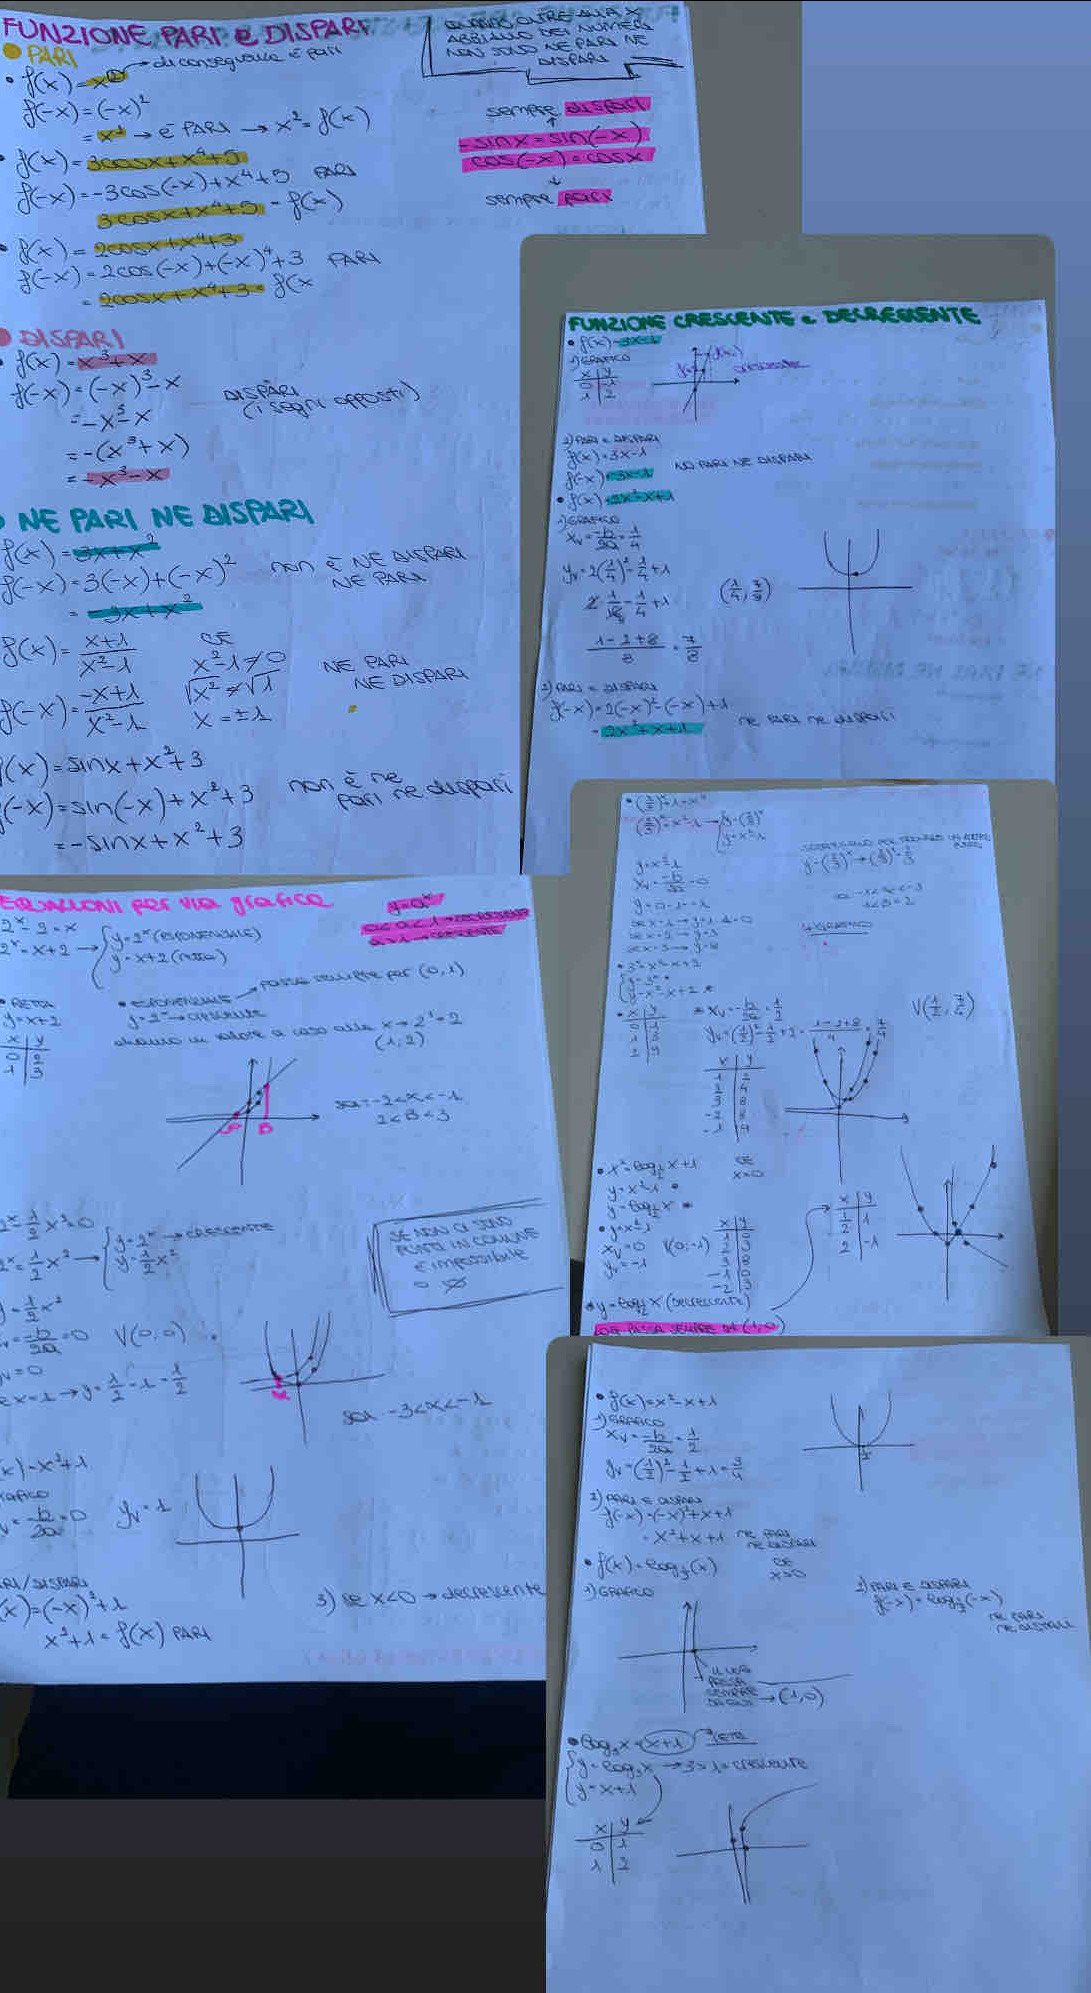 FUNZIONE PARI e DISPARI
QUANDO OLTRE ALLA X
ABBIAMO DEI NUMERI
NON SONO NE PARI NE
DISPARI
PARI
f(x)=x² → di conseguenza è pari
f(-x)=(-x)²
=x² → è PARI → x²=f(x)
sempre dispari
-sinx=sin(-x)
cos(-x)=cosx
sempre pari
f(x)=3cosx+x⁴+5
f(-x)=-3cos(-x)+x⁴+5 PARI
3cosx+x⁴+5=f(x)
f(x)=2cosx+x⁴+3
f(-x)=2cos(-x)+(-x)⁴+3 PARI
=2cosx+x⁴+3=f(x
DISPARI
f(x)=x³+x
f(-x)=(-x)³-x
=-x³-x
=-(x³+x)
=-x³-x
DISPARI
(i segni opposti)
NE PARI NE DISPARI
f(x)=3x+x²
f(-x)=3(-x)+(-x)² non è NE DISPARI
NE PARI
=-3x+x²
f(x)=x+1/x²-1 CE
x²-1≠0
√x²≠√1
x=±1
f(-x)=-x+1/x²-1
NE PARI
NE DISPARI
f(x)=sinx+x²+3
f(-x)=sin(-x)+x²+3 non è ne
pari ne dispari
=-sinx+x²+3
FUNZIONE CRESCENTE e DECRESCENTE
f(x)=3x-1
1) GRAFICO
x y
0 -1
1 2
crescente
2) PARI e DISPARI
f(x)=3x-1
f(-x)=-3x-1 NO PARI NE DISPARI
f(x)=2x²-x+1
1) GRAFICO
xv=-b/2a=1/4
yv=2(1/4)²-1/4+1
2 1/16-1/4+1
1-2+8/8=7/8
(1/4,7/8)
2) PARI e DISPARI
f(-x)=2(-x)²-(-x)+1
=2x²+x+1 ne pari ne dispari
EQUAZIONI per via grafica
y=aˣ
0<a<1→DECRESCENTE
a>1→CRESCENTE
2ˣ-2=x
2ˣ=x+2 → y=2ˣ (ESPONENZIALE)
y=x+2 (retta)
RETTA
y=x+2
x y
0 2
1 3
ESPONENZIALE → passa sempre per (0,1)
y=2ˣ→crescente
diamo un valore a caso alla x→2¹=2
(1,2)
-2<α<-1
2<B<3
2ˣ-1/2x²=0
2ˣ=1/2x² → y=2ˣ → CRESCENTE
y=1/2x²
SE NON CI SONO
PUNTI IN COMUNE
È IMPOSSIBILE
O ∅
y=1/2x²
xv=-b/2a=0 V(0,0)
yv=0
se x=1→y=1/2·1=1/2
-3<x<-1
f(x)=x²+1
GRAFICO
xv=-b/2a=0 yv=1
PARI/DISPARI
f(x)=(-x)²+1
x²+1=f(x) PARI
3) se x<0→decrescente
(2/3)ˣ+1=x²
(2/3)ˣ=x²-1 → y=(2/3)ˣ
y=x²-1
y=x²-1
xv=-b/2a=0
y=0-1=-1
y=(2/3)ˣ→(2/3)¹=2/3
1<B<2
GRAFICO
3ˣ=x²-x+2
y=3ˣ
y=x²-x+2
x y
0 1
1 3
2 9
xv=-b/2a=1/2
yv=(1/2)²-1/2+2=1-2+8/4=7/4
V(1/2,7/4)
x y
1 2
2 4
3 8
-2 8
-1 4
x²=log½x+1 CE
x>0
y=x²-1
y=log½x
y=x²-1
xv=0 V(0;-1)
yv=-1
x y
1 0
2 3
3 8
-1 0
-2 3
x y
1/2 1
2 -1
y=log½x (decrescente)
LOG PASSA SEMPRE DA (1,0)
f(x)=x²-x+1
1) GRAFICO
xv=-b/2a=1/2
yv=(1/2)²-1/2+1=3/4
2) PARI E DISPARI
f(-x)=(-x)²+x+1
=x²+x+1 ne PARI
ne DISPARI
f(x)=log⅓(x) CE
x>0
1) GRAFICO
IL LOG
PASSA
SEMPRE
→(1,0)
2) PARI E DISPARI
f(-x)=log⅓(-x)
ne PARI
ne DISPARI
log₃x=x+1 RETTA
y=log₃x → 3>1=crescente
y=x+1
x y
0 1
1 2